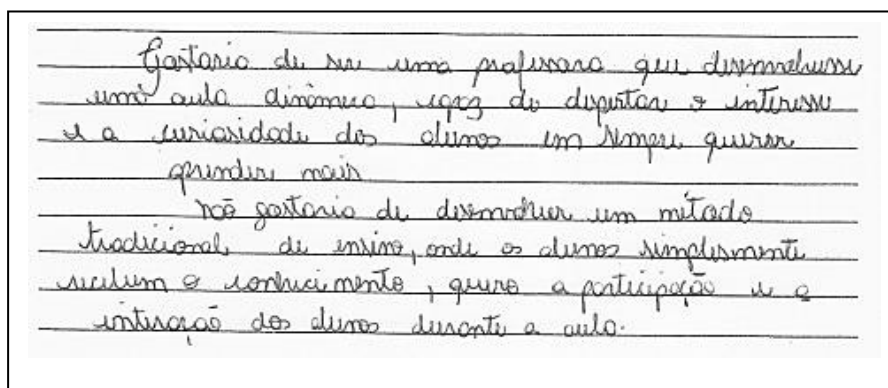 Gostaria de ser uma professora que desenvolvesse
uma aula dinâmica, capaz de dispertar o interesse
e a curiosidade dos alunos em sempre querer
aprender mais
não gostaria de desenvolver um método
tradicional de ensino, onde os alunos simplesmente
recebem o conhecimento, quero a participação e a
interação dos alunos durante a aula.